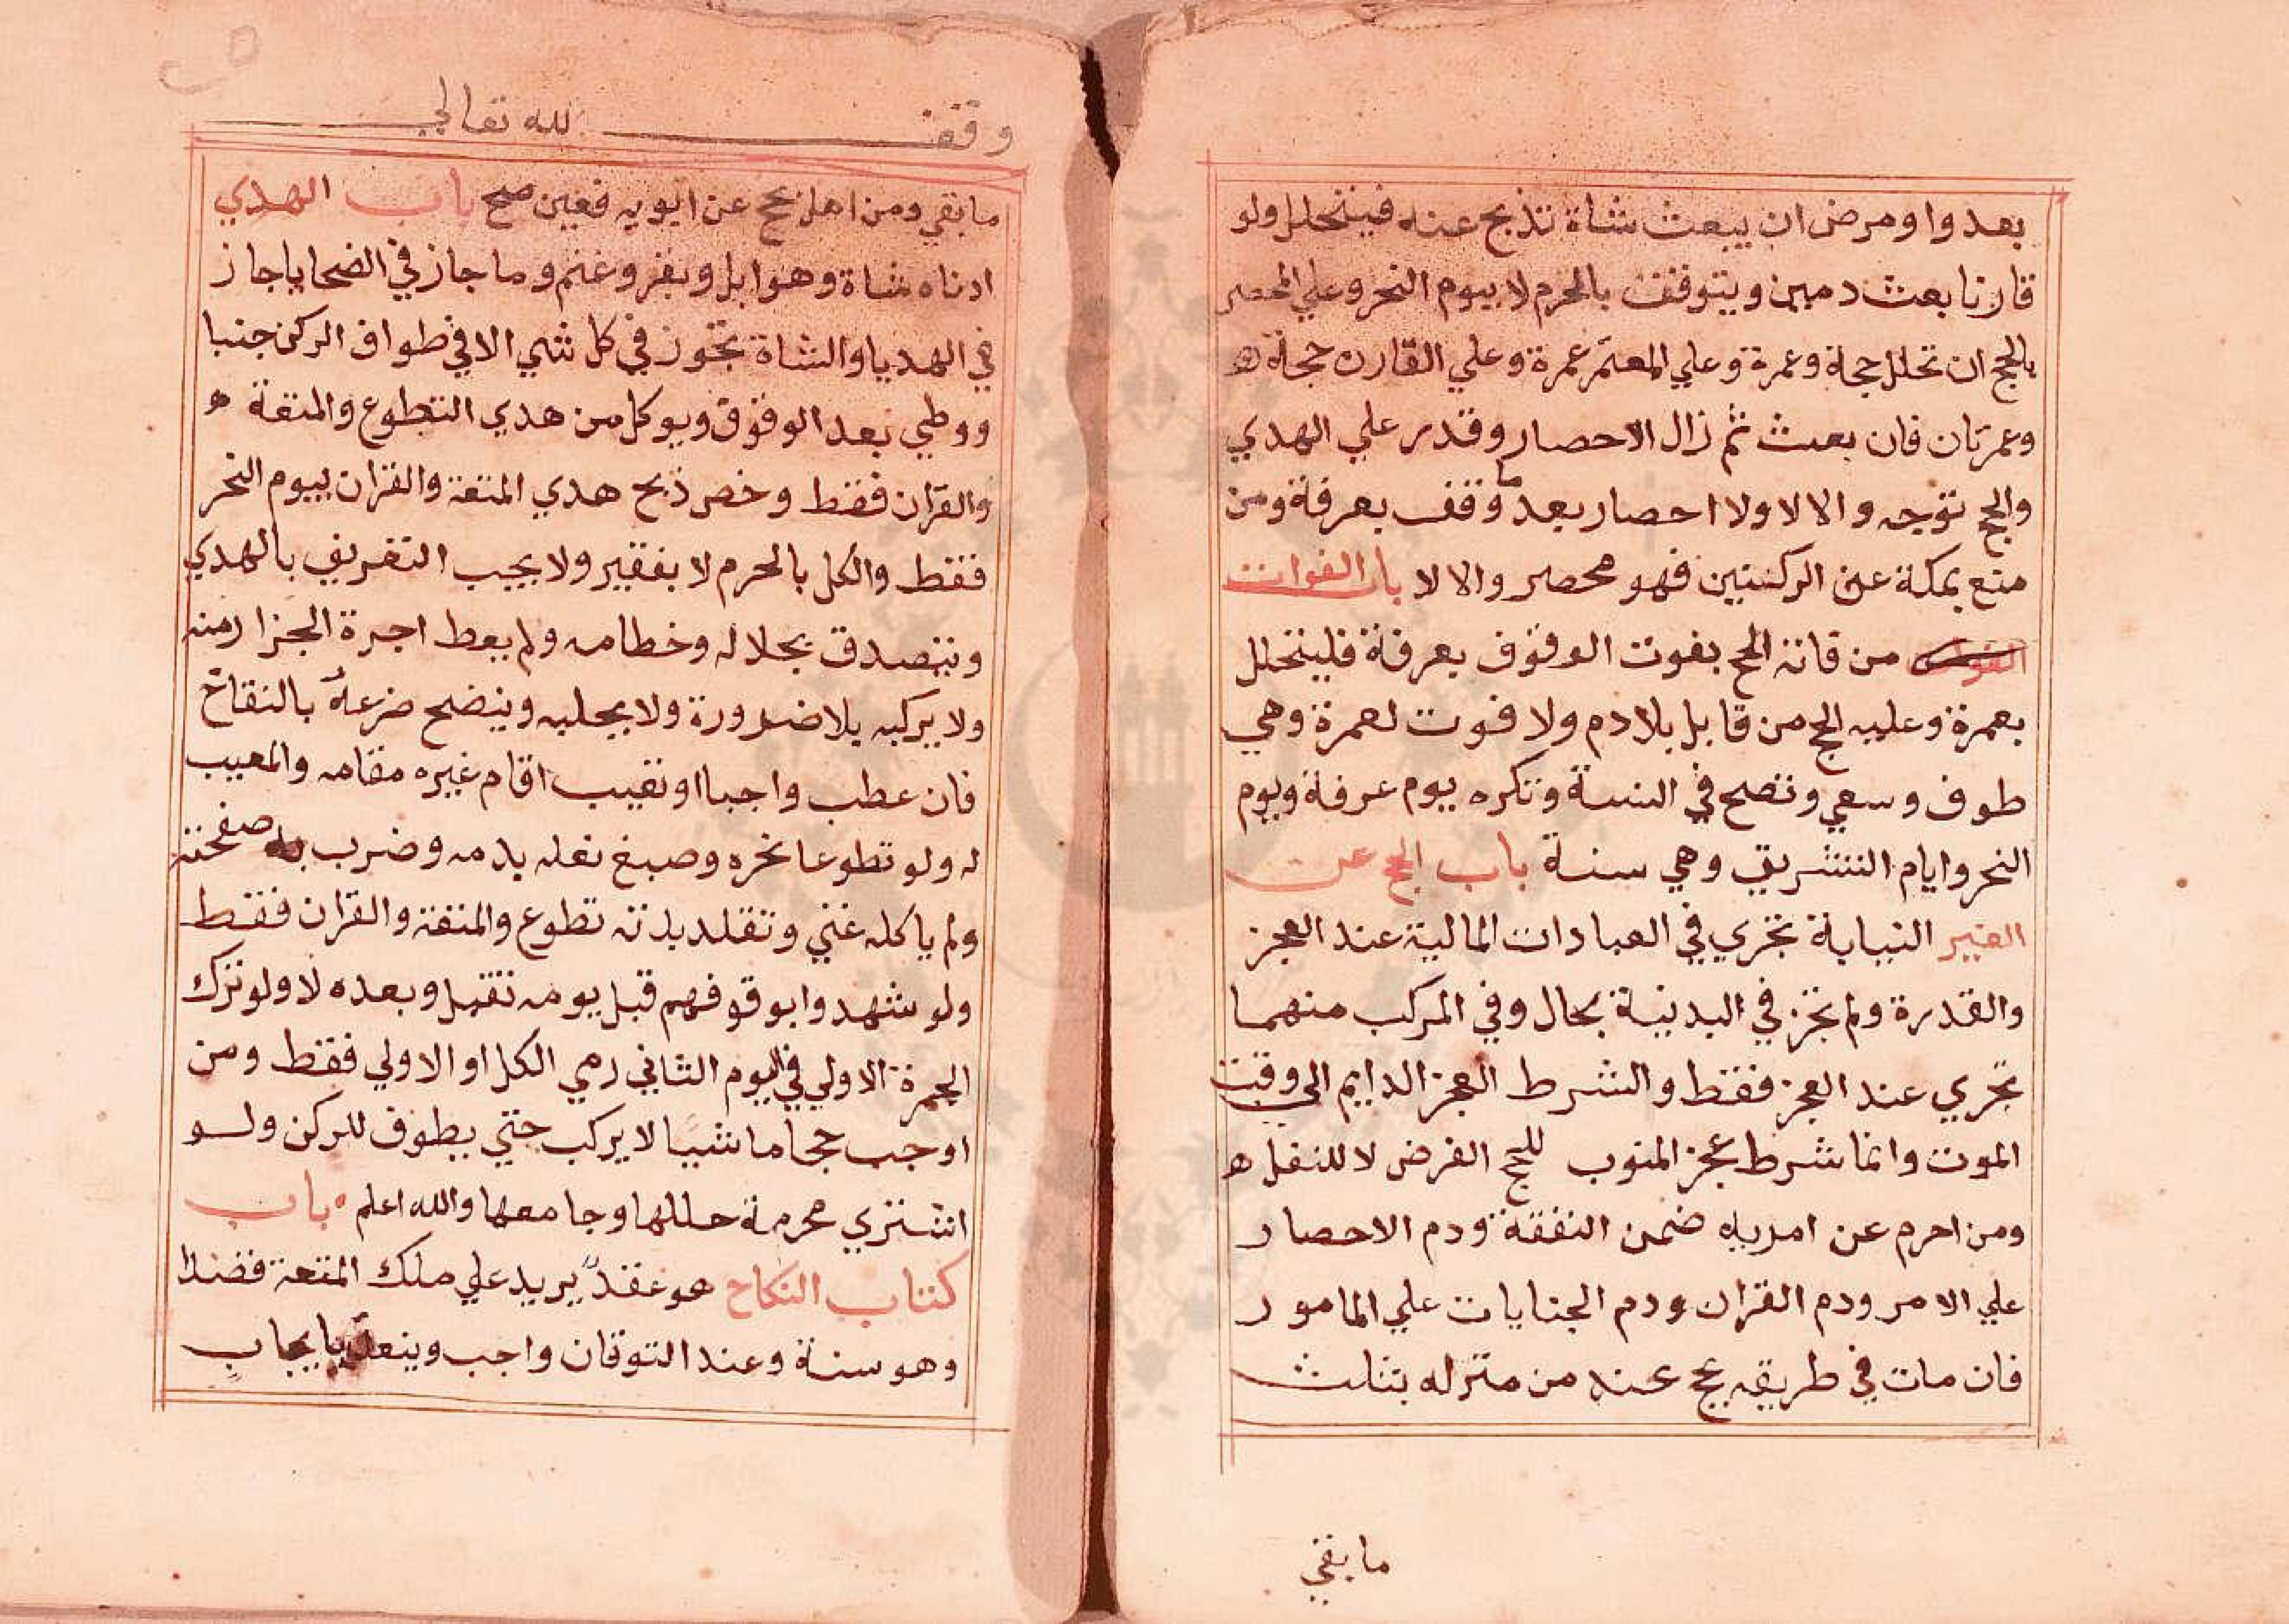 بعدو او مرض ان يبعث شاة تذبح عنه فيتحلل ولو
قارنا بعث دمين ويتوقف بالحرم لا بيوم النحر وعلي المحصر
بالحج ان تحلل حجة وعمرة وعلي المعتمر عمرة وعلي القارن حجة ه
وعمرتان فان بعث ثم زال الاحصار وقدر علي الهدي
والحج توجه والا لا ولا احصار بعد ما وقف بعرفة ومن
منع بمكة عن الركنين فهو محصر والا لا باب الفوات
من فاته الحج بفوت الوقوف بعرفة فليتحلل
بعمرة وعليه الحج من قابل بلا دم ولا فوت لعمرة وهي
طوف وسعي وتصح في السنة وتكره يوم عرفة ويوم
النحر وايام التشريق وهي سنة باب الحج عن
الغير النيابة تجزي في العبادات المالية عند العجز
والقدرة ولم تجز في البدنية بحال وفي المركب منهما
تجزي عند العجز فقط والشرط العجز الدايم الي وقت
الموت وانما شرط عجز المنوب للحج الفرض لا للنفل ه
ومن احرم عن امريه ضمن النفقة ودم الاحصار
علي الامر ودم القران ودم الجنايات علي المامور
فان مات في طريقه يحج عنه من منزله بثلث
ما بقي
وقف لله تعالي
ما بقي ومن اهل بحج عن ابويه فعين صح باب الهدي
ادناه شاة وهو ابل وبقر وغنم وما جاز في الضحايا جاز
في الهديا والشاة تجوز في كل شي الا في طواف الركن جنبا
ووطي بعد الوقوف ويوكل من هدي التطوع والمتعة ه
والقران فقط وخص ذبح هدي المتعة والقران بيوم النحر
فقط والكل بالحرم لا بفقير ولا يجب التعريف بالهدي
ويتصدق بجلاله وخطامه ولم يعط اجرة الجزار منه
ولا يركبه بلا ضرورة ولا يحلبه وينضح ضرعه بالنقاخ
فان عطب واجبا او تعيب اقام غيره مقامه والمعيب
له ولو تطوعا نحره وصبغ نعله بدمه وضرب به صفحته
ولم ياكله غني وتقلد بدنة تطوع والمتعة والقران فقط
ولو شهدوا بوقوفهم قبل يومه تقبل وبعده لا ولو ترك
الجمرة الاولي في اليوم الثاني رمي الكل او الاولي فقط ومن
اوجب حجا ماشيا لا يركب حتي يطوف للركن ولو
اشتري محرمة حللها وجامعها والله اعلم ه باب
كتاب النكاح هو عقد يريد علي ملك المتعة قصدا
وهو سنة وعند التوقان واجب وينعقد بايجاب